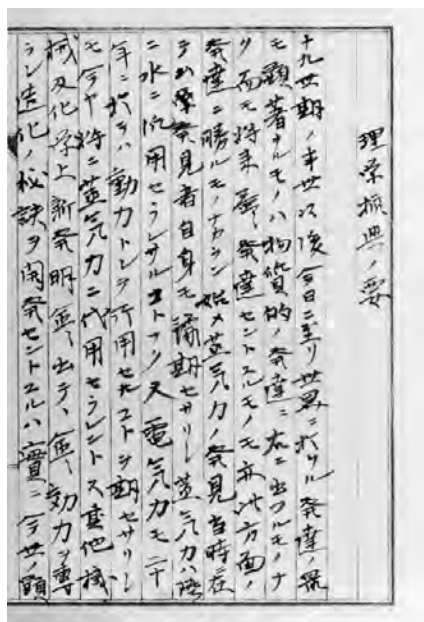 理学振興ノ要
十九世期ノ半世以後今日ニ至リ世界ニ於ケル発達ノ最
モ顕著ナルモノハ物質的ノ発達ニ右ニ出ツルモノナ
ク而モ将来益々発達セントスルモノモ亦此方面ノ
発達ニ勝ルモノナカラン始メ蒸気力ノ発見当時ニ在
テハ学発見者自身モ豫期セサリシ蒸気力ハ陸
ニ水ニ汎用セラレサルコトナク又電気力モ二十
年ニ於テハ動力トシテ行用セラルコトヲ期セサリシ
モ今ヤ将ニ蒸気力ニ代用セラレントス其他機
械及化学上新発明益々出テヽ益々効力ヲ専
ラン造化ノ秘訣ヲ開発セントスルハ實ニ今世ノ顕